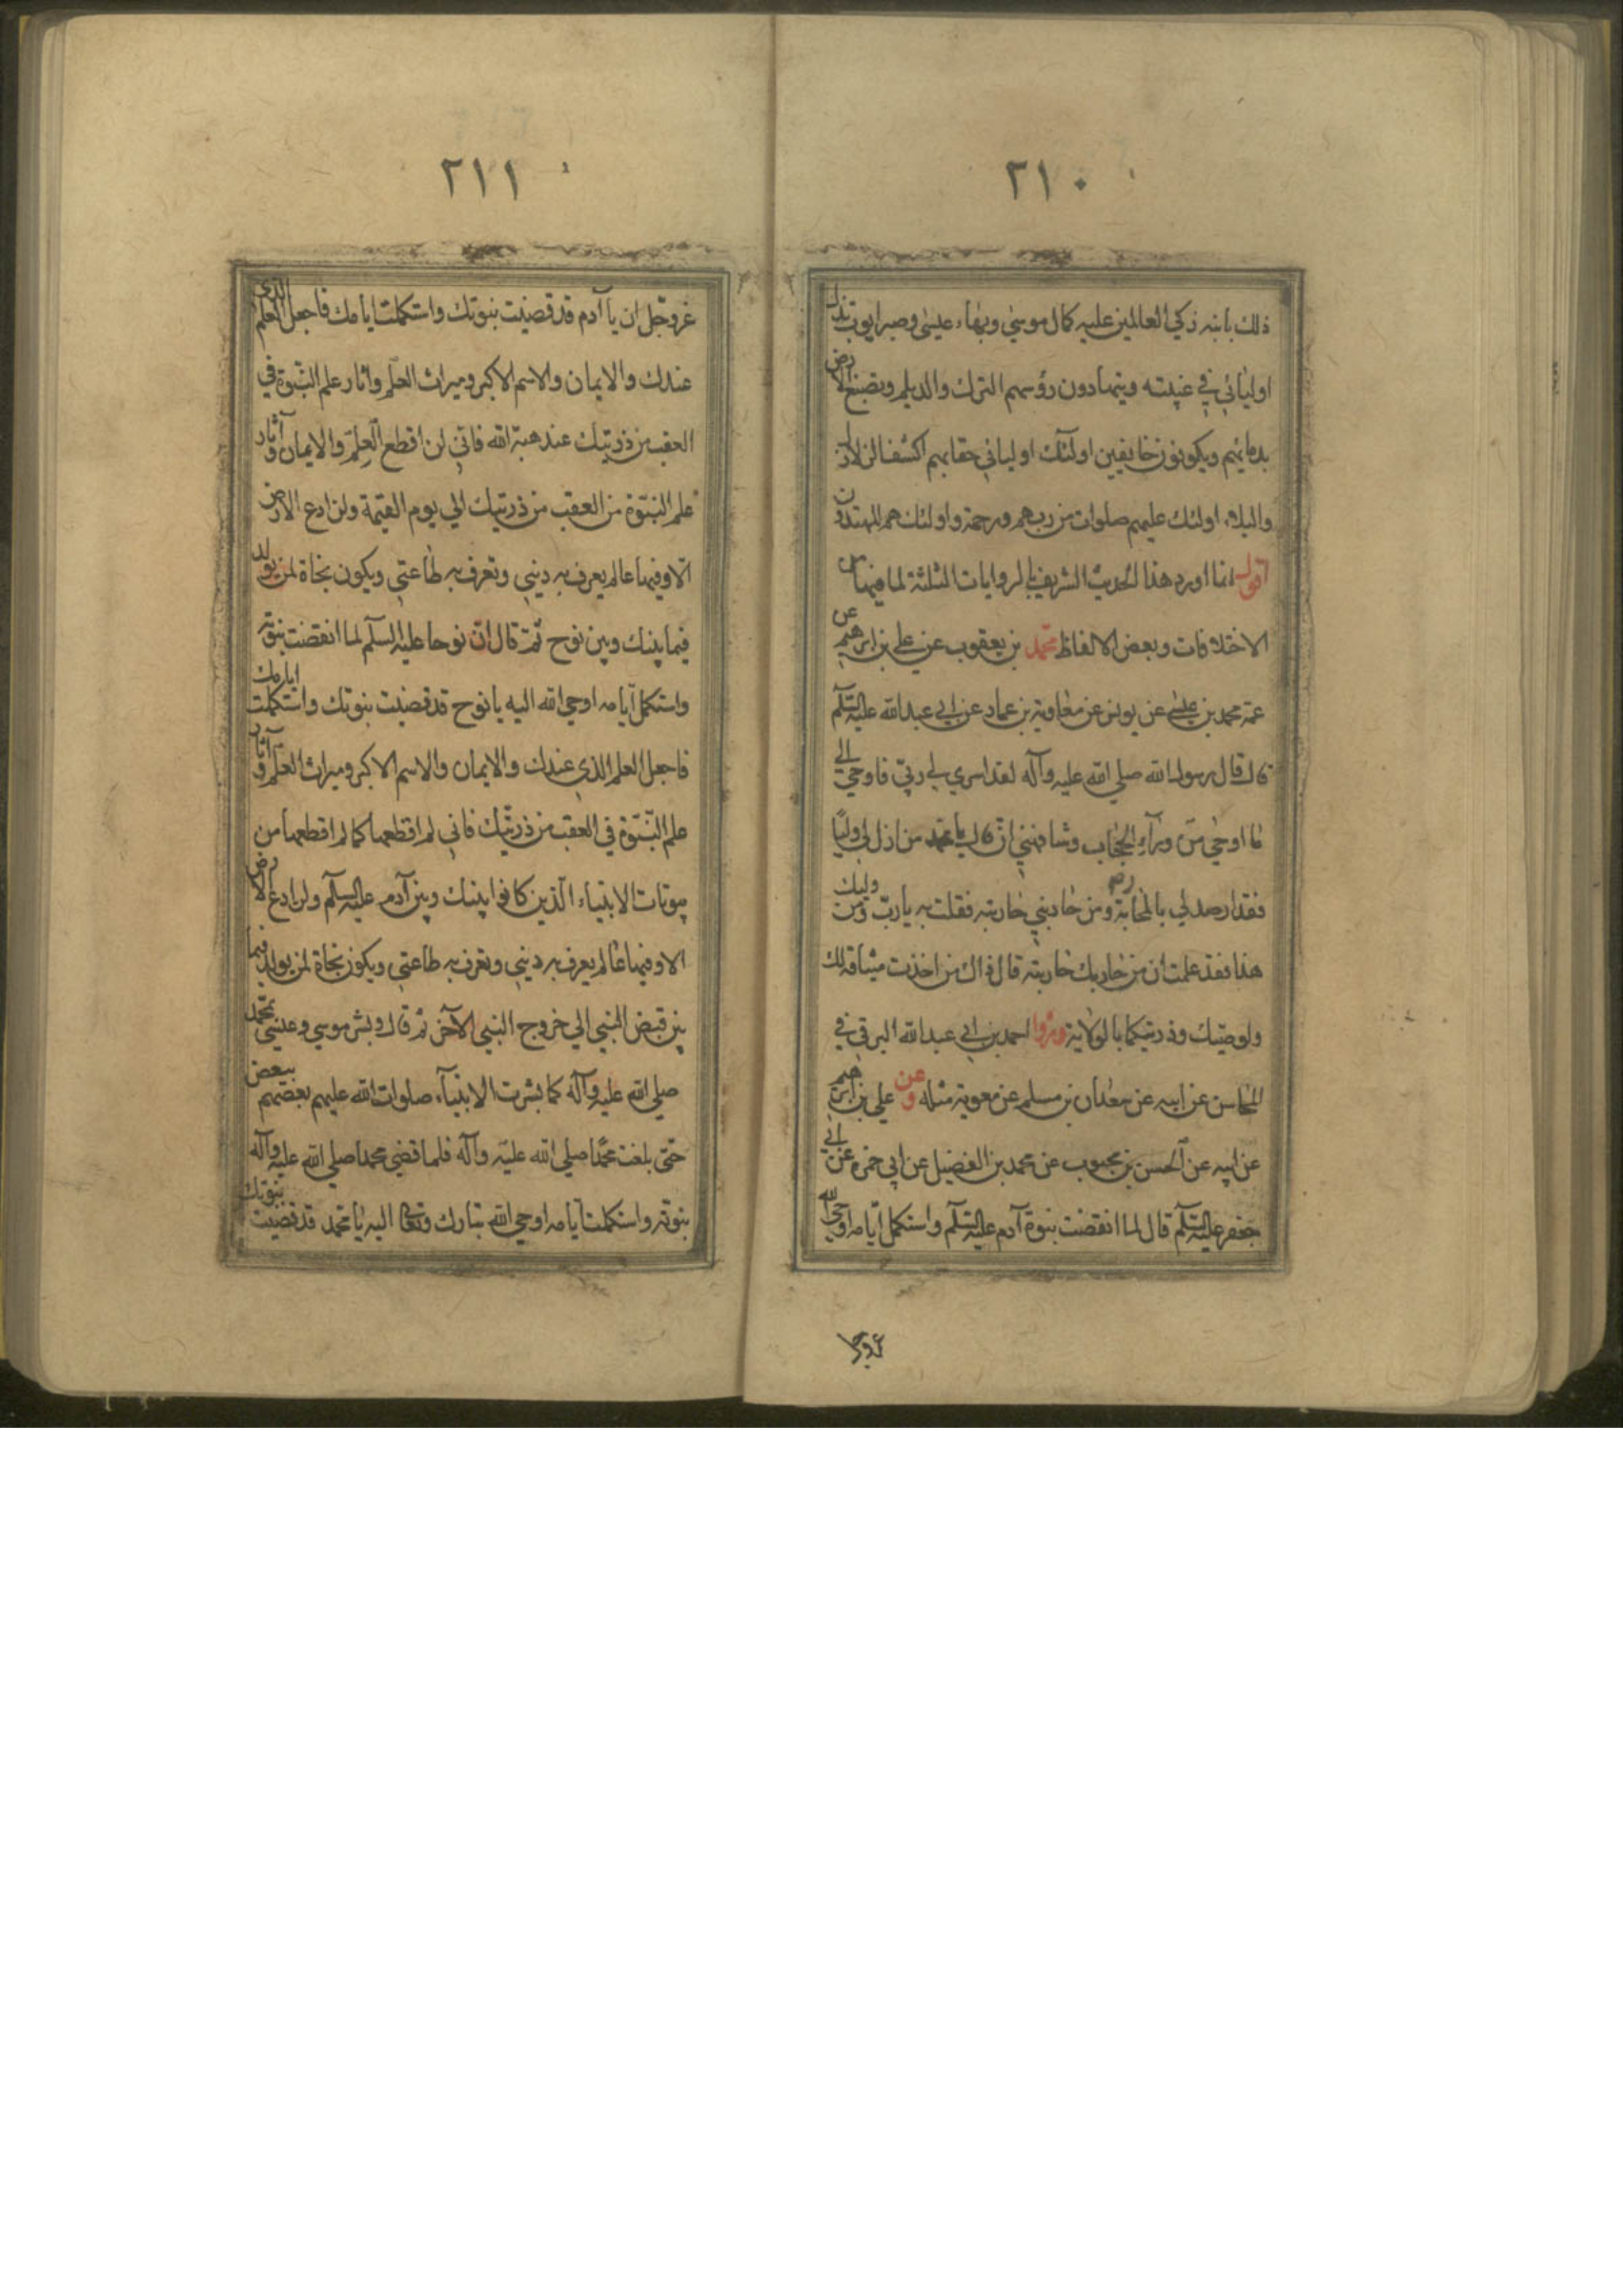 ٢١٠
ذلك بابنه زكي العالمين عليه كمال موسى وبهاء عيسى وصبر ايوب تذل
اوليائي في غيبته ويتهادون رؤسهم الترك والديلم وتصبغ الارض
بدمائهم ويكونون خايفين اولئك اوليائي حقا بهم اكشف الزلازل
والبلاء اولئك عليهم صلوات من ربهم ورحمة واولئك هم المهتدون
اقول انما اورد هذا الحديث الشريف بالروايات الثلثة لما فيها من
الاختلافات وبعض الالفاظ محمد بن يعقوب عن علي بن ابرهيم عن
عمه محمد بن عيسى عن يونس عن معاوية بن عمار عن ابي عبدالله عليه السلم
قال قال رسول الله صلي الله عليه وآله لقد اسري بي ربي فاوحي الي
ما اوحي من وراء الحجاب وشافهني ان قال يا محمد من اذل لي وليا
فقد ارصد لي بالمحاربة ومن حاربني حاربته فقلت يا رب ومن وليك
هذا فقد علمت ان من حاربك حاربته قال ذاك من اخذت ميثاقه لك
ولوصيك وذريتكما بالولاية وروا احمد بن ابي عبدالله البرقي في
المحاسن عن ابيه عن سعدان بن مسلم عن معوية مثله وعن علي بن ابرهيم
عن ابيه عن الحسن بن محبوب عن محمد بن الفضيل عن ابي حمزه عن ابي
جعفر عليه السلم قال لما انقضت نبوة آدم عليه السلم واستكمل ايامه اوحي الله
عزوجل
٢١١
عزوجل ان يا آدم قد قضيت نبوتك واستكملت ايامك فاجعل العلم الذي
عندك والايمان والاسم الاكبر وميراث العلم واثار علم النبوة في
العقب من ذريتك عند هبة الله فاني لن اقطع العلم والايمان وآثار
علم النبوة من العقب من ذريتك الي يوم القيمة ولن ادع الارض
الا وفيها عالم يعرف به ديني وتعرف به طاعتي ويكون نجاة لمن يولد
فيما بينك وبين نوح ثم قال ان نوحا عليه السلم لما انقضت نبوته
واستكمل ايامه اوحي الله اليه يا نوح قد قضيت نبوتك واستكملت ايامك
فاجعل العلم الذي عندك والايمان والاسم الاكبر وميراث العلم وآثار
علم النبوة في العقب من ذريتك فاني لم اقطعها كما لم اقطعها من
بيوتات الانبياء الذين كانوا بينك وبين آدم عليه السلم ولن ادع الارض
الا وفيها عالم يعرف به ديني وتعرف به طاعتي ويكون نجاة لمن يولد فيما
بين قبض النبي الي خروج النبي الآخر ثم قال وبشر موسي وعيسي بمحمد
صلي الله عليه وآله كما بشرت الانبياء صلوات الله عليهم بعضهم ببعض
حتى بلغت محمدا صلي الله عليه وآله فلما قضي محمد صلي الله عليه وآله
نبوته واستكملت ايامه اوحي الله تبارك وتعالي اليه يا محمد قد قضيت نبوتك